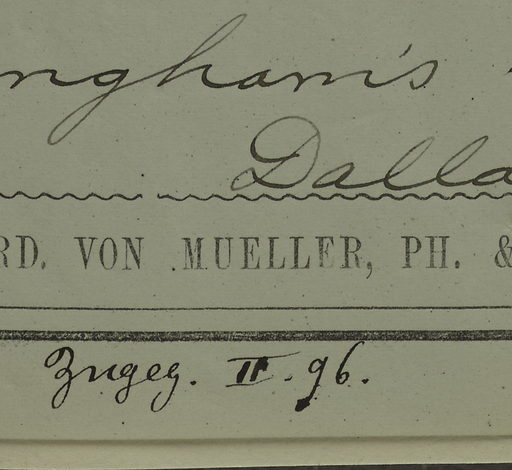 ngham's
Dalla
RD. VON MUELLER, PH. &
Zugeg. II. 96.